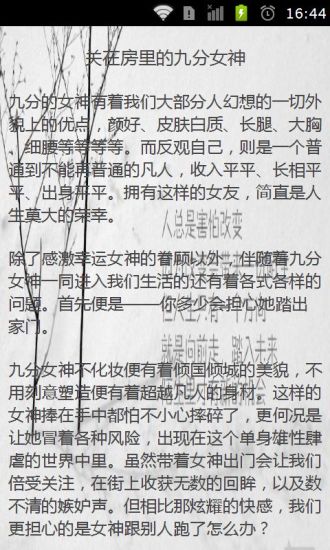 16:44
关在房里的九分女神
九分的女神有着我们大部分人幻想的一切外
貌上的优点，颜好、皮肤白质、长腿、大胸
、细腰等等等等。而反观自己，则是一个普
通到不能再普通的凡人，收入平平、长相平
平、出身平平。拥有这样的女友，简直是人
生莫大的荣幸。
人总是害怕改变
除了感激幸运女神的眷顾以外，伴随着九分
女神一同进入我们生活的还有着各式各样的
问题。首先便是——你多少会担心她踏出
家门。
就是向前走，踏入未来
九分女神不化妆便有着倾国倾城的美貌，不
用刻意塑造便有着超越凡人的身材。这样的
女神捧在手中都怕不小心摔碎了，更何况是
让她冒着各种风险，出现在这个单身雄性肆
虐的世界中里。虽然带着女神出门会让我们
倍受关注，在街上收获无数的回眸，以及数
不清的嫉妒声。但相比那炫耀的快感，我们
更担心的是女神跟别人跑了怎么办？